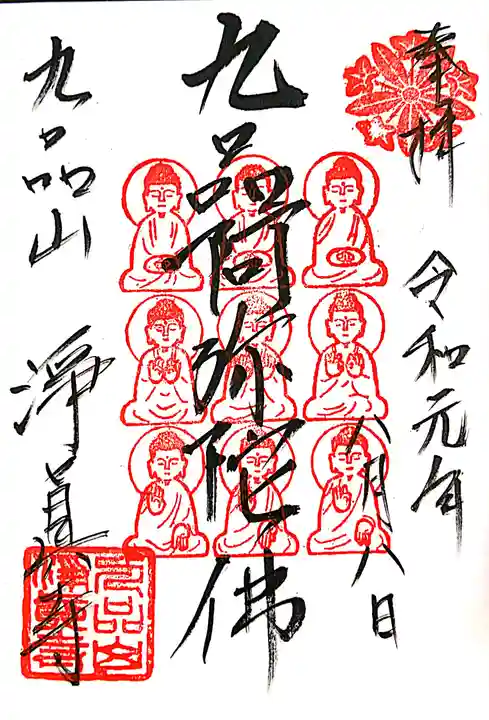 奉拝
令和元年
八月八日
九品阿弥陀佛
九品山
淨真寺